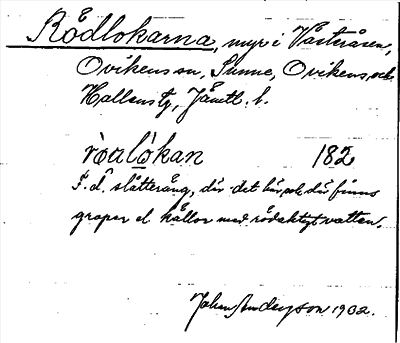 Rödlokarna, myr i Västeråsen,
Ovikens sn, Sunne, Ovikens, och
Hallens tg, Jämtl. l.
ròalókan 182
F. d. slåtteräng, där det här och där finns
gropar el. källor med rödaktigt vatten.
Johan Anderson 1932.